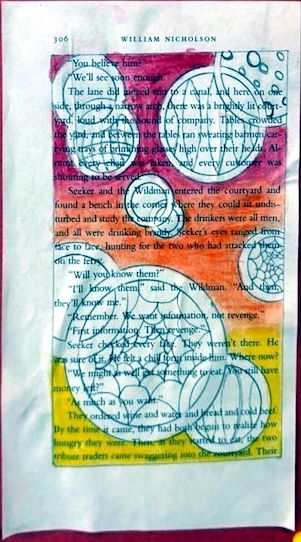 306 WILLIAM NICHOLSON
"You believe him?"
"We'll see soon enough."
The lane did indeed run to a canal, and here on one
side, through a narrow arch, there was a brightly lit court-
yard, loud with the sound of company. Tables crowded
the yard, and between the tables ran sweating barmen car-
rying trays of brimming glasses high over their heads. Al-
most every chair was taken, and every customer was
shouting to be served.
Seeker and the Wildman entered the courtyard and
found a bench in the corner where they could sit undis-
turbed and study the company. The drinkers were all men,
and all were drinking brandy. Seeker's eyes ranged from
face to face, hunting for the two who had attacked them
on the ferry.
"Will you know them?"
"I'll know them," said the Wildman. "And then,
they'll know me."
"Remember. We want information, not revenge."
"First information. Then revenge."
Seeker checked every face. They weren't there. He
was sure of it. He felt a chill form inside him. Where now?
"We might as well get something to eat. You still have
money left?"
"As much as you want."
They ordered wine and water and bread and cold beef.
By the time it came, they had both begun to realize how
hungry they were. Then, as they started to eat, the two
tribute traders came swaggering into the courtyard. Their